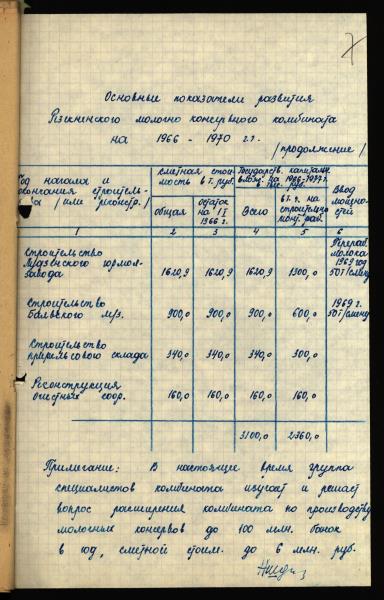 7
Основные показатели развития
Резекненского молочно консервного комбината
на 1966 - 1970 г.г.
/продолжение/
Год начала и окончания строитель- ва /или реконстр./
сметная стои- мость в т. руб.
Государств. капитал. влож. на
общая
остаток на 1 I 1966 г.
Всего
в т. ч. на строительно монт. раб.
Ввод мощно- стей
1 2 3 4 5 6
Строительство гормол- завода 1620,9 1620,9 1620,9 1300,0 Перераб. молока 50т/смену
Строительство Балвского м/з. 900,0 900,0 900,0 600,0 1969 г. 50т/смену
Строительство прирельсового склада 340,0 340,0 340,0 300,0
Реконструкция очистных соор. 160,0 160,0 160,0 160,0
3100,0 2360,0
Примечание: В настоящее время группа
специалистов комбината изучает и решает
вопрос расширения комбината по производству
молочных консервов до 100 млн. банок
в год, сметной стоим. до 6 млн. руб.